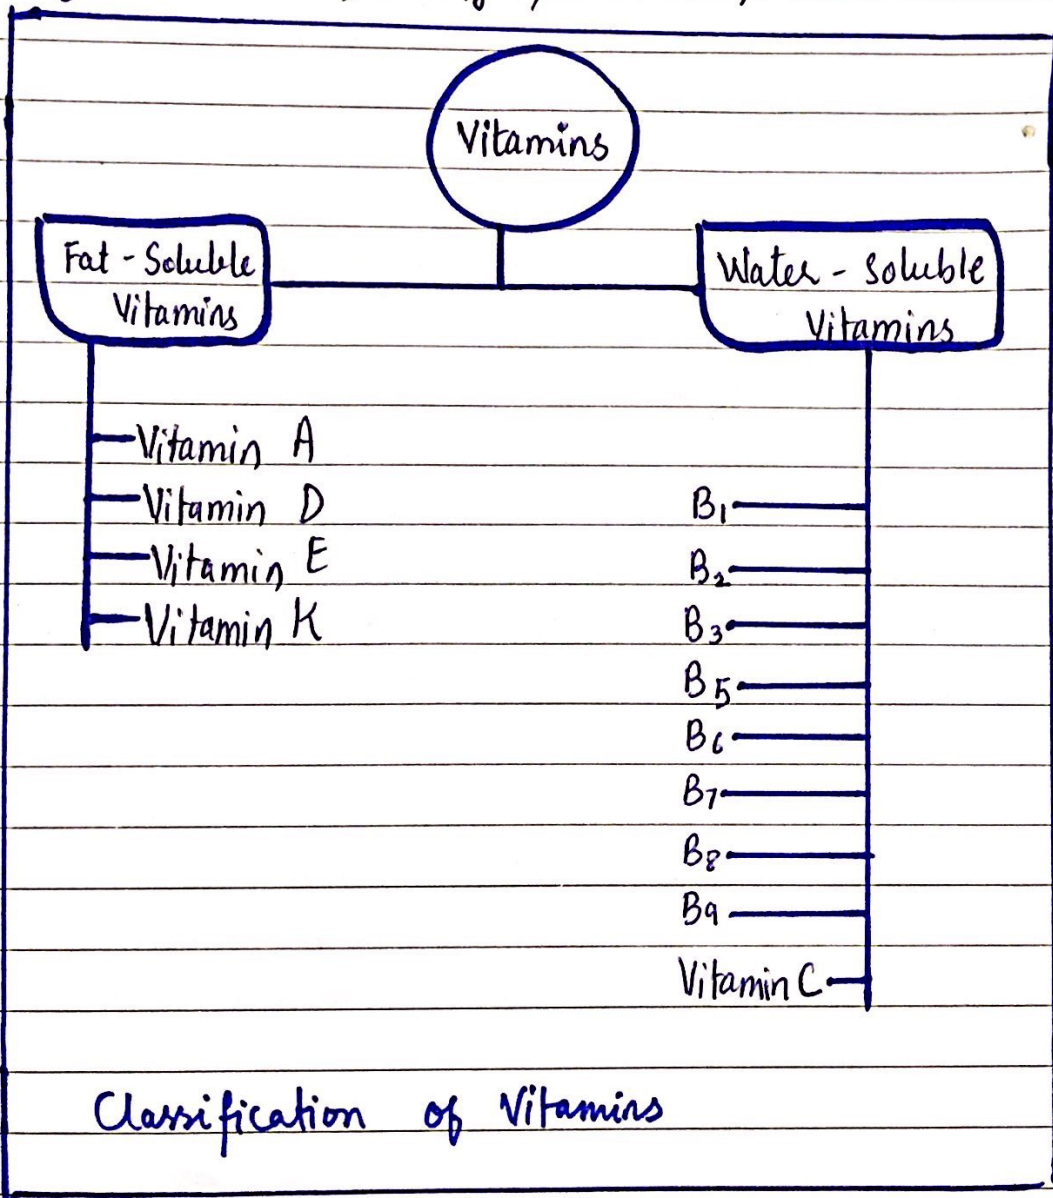 Vitamins
Fat - Soluble
Vitamins
Water - soluble
Vitamins
Vitamin A
Vitamin D
Vitamin E
Vitamin K
B₁
B₂
B₃
B₅
B₆
B₇
B₈
B₉
Vitamin C
Classification of Vitamins